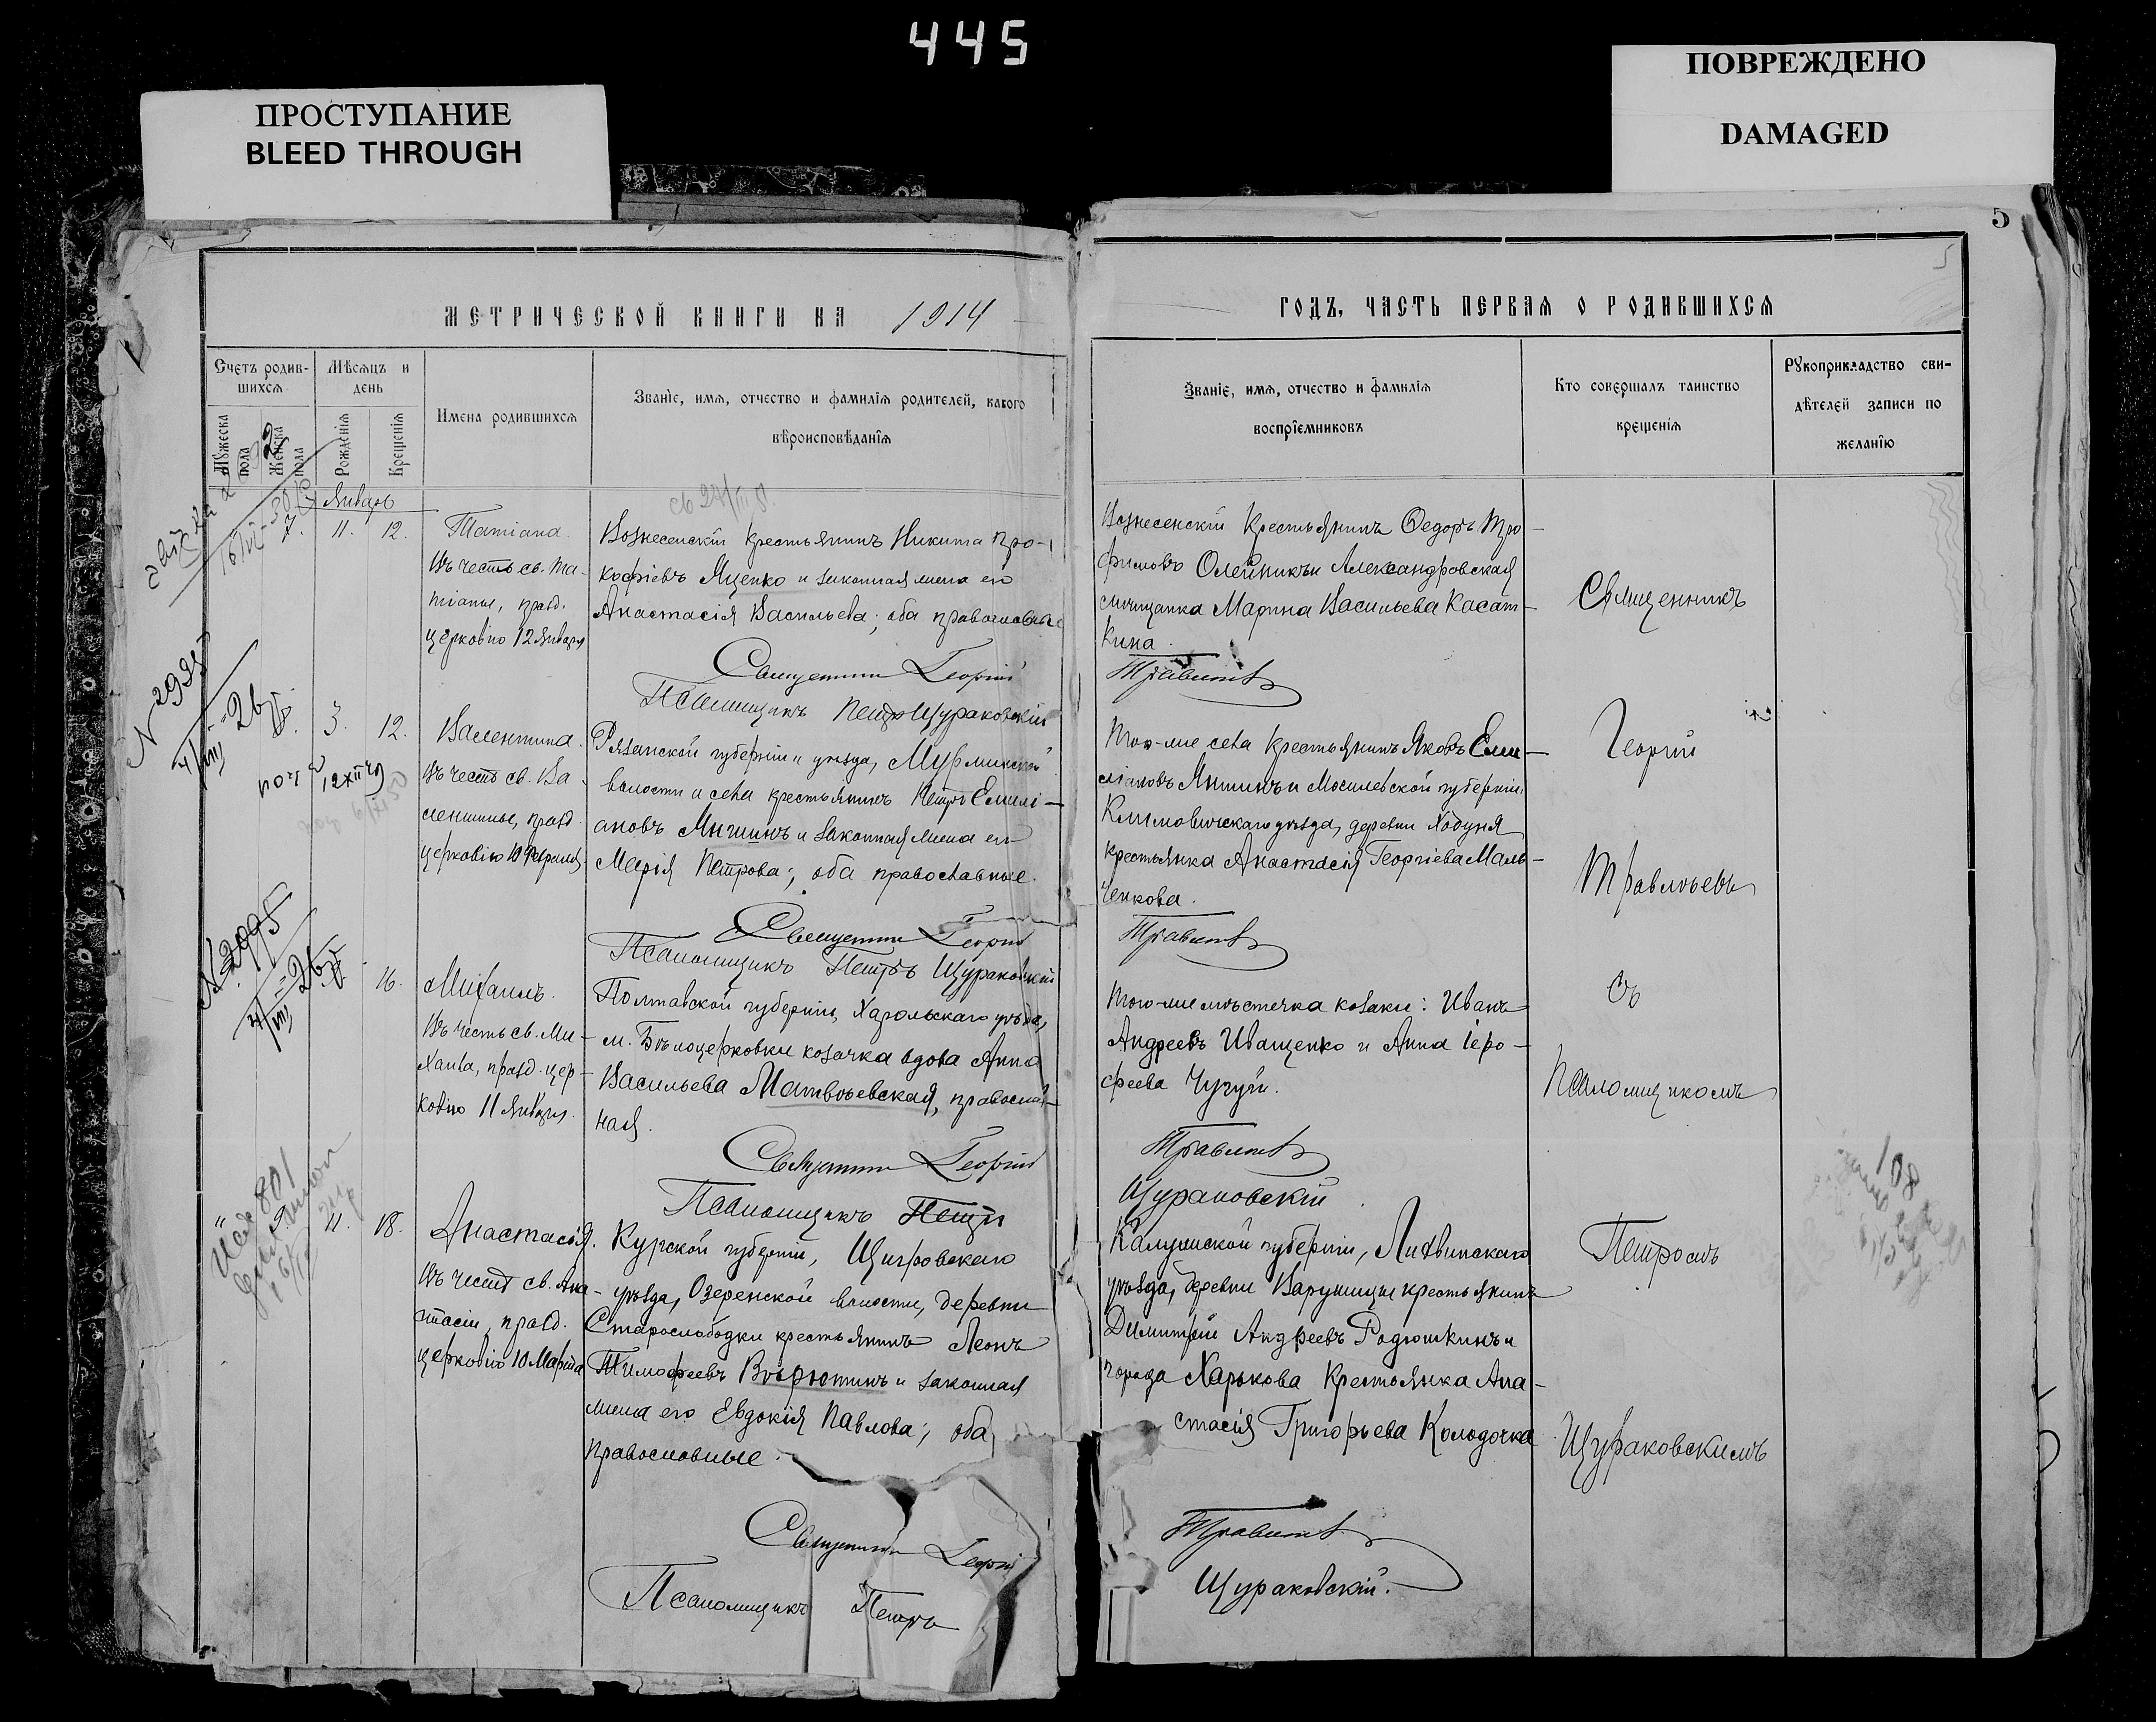 445
ПРОСТУПАНИЕ
BLEED THROUGH
ПОВРЕЖДЕНО
DAMAGED
5
5
МЕТРИЧЕСКОЙ КНИГИ НА 1914
ГОДЪ, ЧАСТЬ ПЕРВАЯ О РОДИВШИХСЯ
Счетъ родив-
шихся
Мужеска
пола
Женска
пола
Мѣсяцъ и
день
Рожденія
Крещенія
Имена родившихся
Званіе, имя, отчество и фамилія родителей, какого
вѣроисповѣданія
Званіе, имя, отчество и фамилія
воспріемниковъ
Кто совершалъ таинство
крещенія
Рукоприкладство сви-
дѣтелей записи по
желанію
Январь
7. 11. 12.
Татіана.
Въ честь св. Та-
тіаны, празд.
церковію 12 Января
Вознесенскій крестьянинъ Никита Про-
кофіевъ Яценко и законная жена его
Анастасія Васильева; оба православные
Священникъ Георгій
Псаломщикъ Петръ Щураковскій
Вознесенскій крестьянинъ Ѳедоръ Тро-
фимовъ Олейникъ и Александровская
мѣщанка Марина Васильева Касат-
кина.
Травлѣевъ
N 2995
8. 3. 12.
Валентина.
Въ честь св. Ва-
лентины, празд.
церковію 10 Февраля
Рязанской губерніи и уѣзда, Мурминской
волости и села крестьянинъ Петръ Емилі-
ановъ Яншинъ и законная жена его
Марія Петрова; оба православные.
Священникъ Георгій
Псаломщикъ Петръ Щураковскій
Того-же села крестьянинъ Яковъ Еми-
ліановъ Яншинъ и Могилевской губерніи,
Климовичскаго уѣзда, деревни Ходуня
крестьянка Анастасія Георгіева Маль-
ченкова.
Травлѣевъ
N 2995
16.
Михаилъ.
Въ честь св. Ми-
хаила, празд. цер-
ковію 11 Января.
Полтавской губерніи, Хорольскаго уѣзда,
м. Бѣлоцерковки козачка вдова Анна
Васильева Матвѣевская, православ-
ная.
Священникъ Георгій
Псаломщикъ Петръ
Того-же мѣстечка козаки: Иванъ
Андреевъ Иващенко и Анна Іеро-
феева Чугуй.
Травлѣевъ
Щураковскій
801
" 9. 11. 18.
Анастасія.
Въ честь св. Ана-
стасіи, празд.
церковію 10 Марта
Курской губерніи, Щигровскаго
уѣзда, Озеренской волости, деревни
Старослободки крестьянинъ Леонъ
Тимофеевъ Вѣрютинъ и законная
жена его Евдокія Павлова; оба
православные.
Священникъ Георгій
Псаломщикъ Петръ
Калужской губерніи, Лихвинскаго
уѣзда, деревни Варушицы крестьянинъ
Димитрій Андреевъ Родюшкинъ и
города Харькова крестьянка Ана-
стасія Григорьева Колодочка
Травлѣевъ
Щураковскій.
Священникъ
Георгій
Травлѣевъ
Съ
Псаломщикомъ
Петромъ
Щураковскимъ